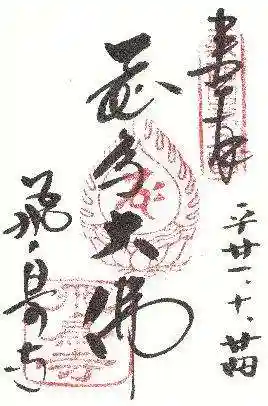 奉拝
平廿一.十.廿四
飛鳥大佛
飛鳥寺